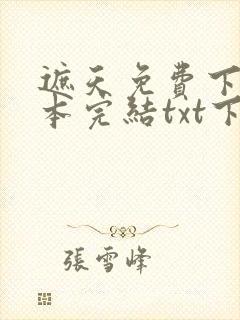 遮天免費下
本完結txt下
張雪峰